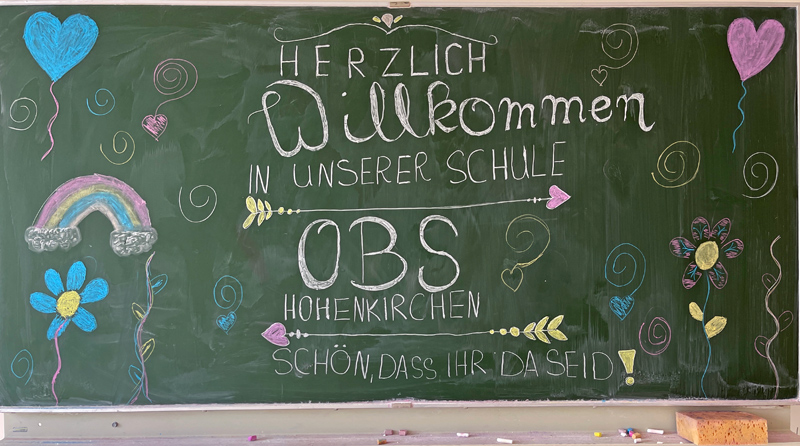 HERZLICH
Willkommen
IN UNSERER SCHULE
OBS
HOHENKIRCHEN
SCHÖN, DASS IHR DA SEID!